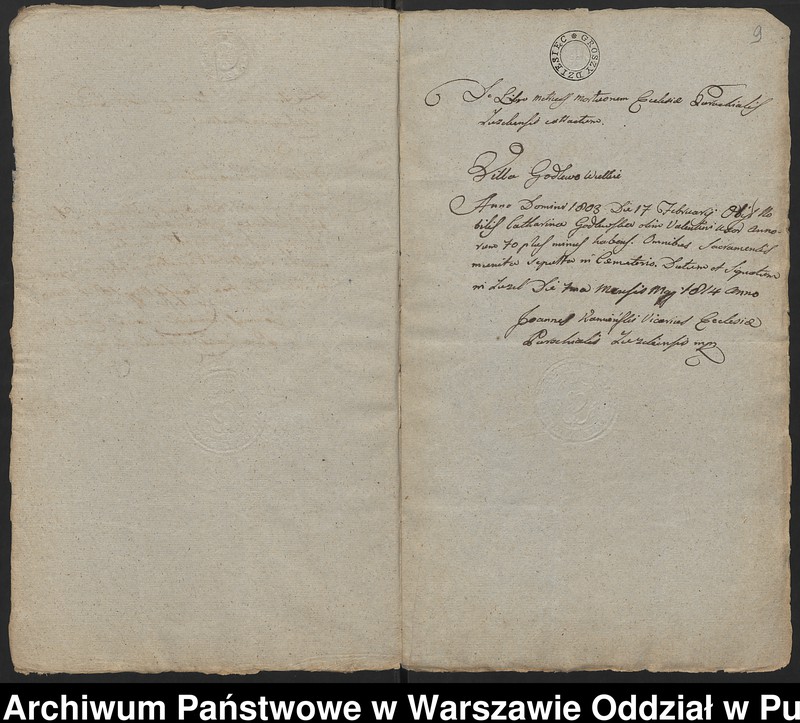 9
DZIESIĘC GROSZY
De Libro Metrices Mortuorum Ecclesiæ Parochialis
Zuzelensis extractum.
Villa Godlewo Wielkie
Anno Domini 1803 Die 17 Februarij Obijt No
bilis Catharina Godlewska olim Valentini Uxor Anno-
rum 70 plus minus habens. Omnibus Sacramentis
munita sepulta in Cæmeterio. Datum et Signatum
in Zuzel Die 1ma Mensis Maji 1814 Anno
Joannes Kamiński Vicarius Ecclesiæ
Parochialis Zuzelensis mp
Archiwum Państwowe w Warszawie Oddział w Pu